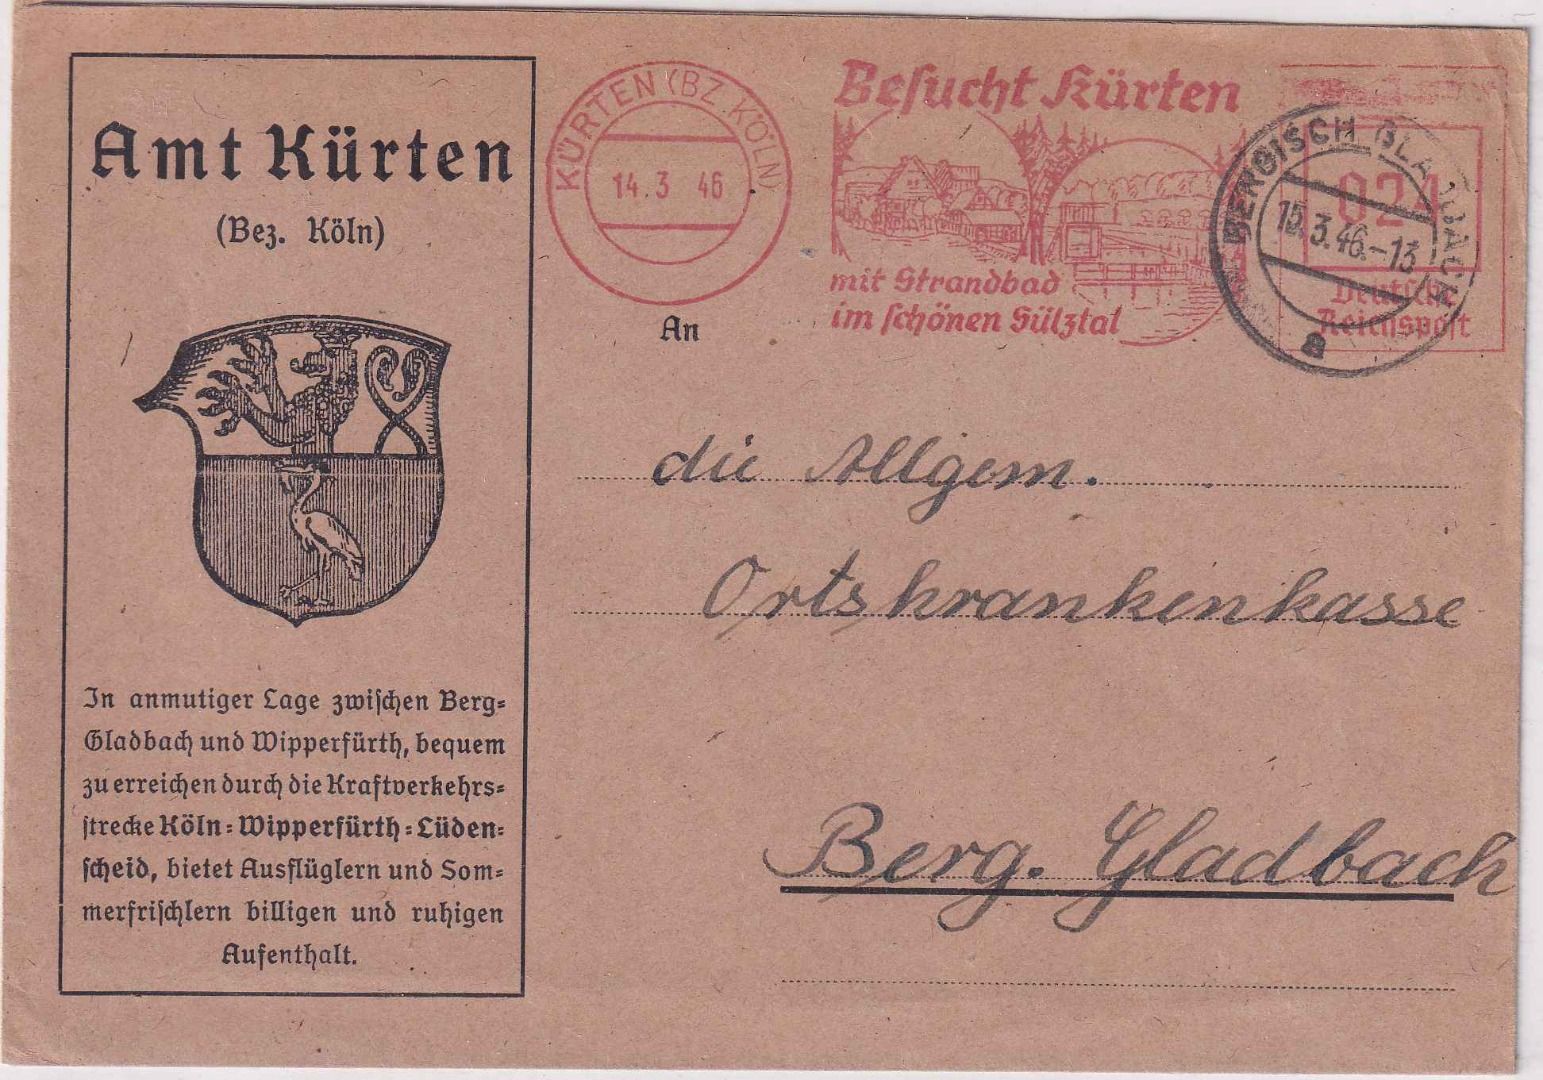 Amt Kürten
(Bez. Köln)
In anmutiger Lage zwischen Berg-
Gladbach und Wipperfürth, bequem
zu erreichen durch die Kraftverkehrs-
strecke Köln-Wipperfürth-Lüden-
scheid, bietet Ausflüglern und Som-
merfrischlern billigen und ruhigen
Aufenthalt.
KÜRTEN (BZ. KÖLN)
14.3 46
Besucht Kürten
mit Strandbad
im schönen Sülztal
BERGISCH GLADBACH
15.3.46.-13
a
024
Deutsche
Reichspost
An
die Allgem.
Ortskrankenkasse
Berg. Gladbach